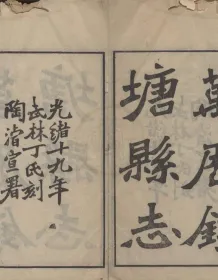 萬曆錢
塘縣志
光緒十九年
武林丁氏刻
陶濬宣署